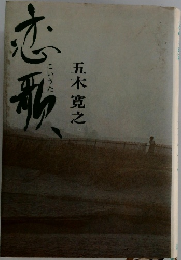 恋歌
こいうた
五木寛之